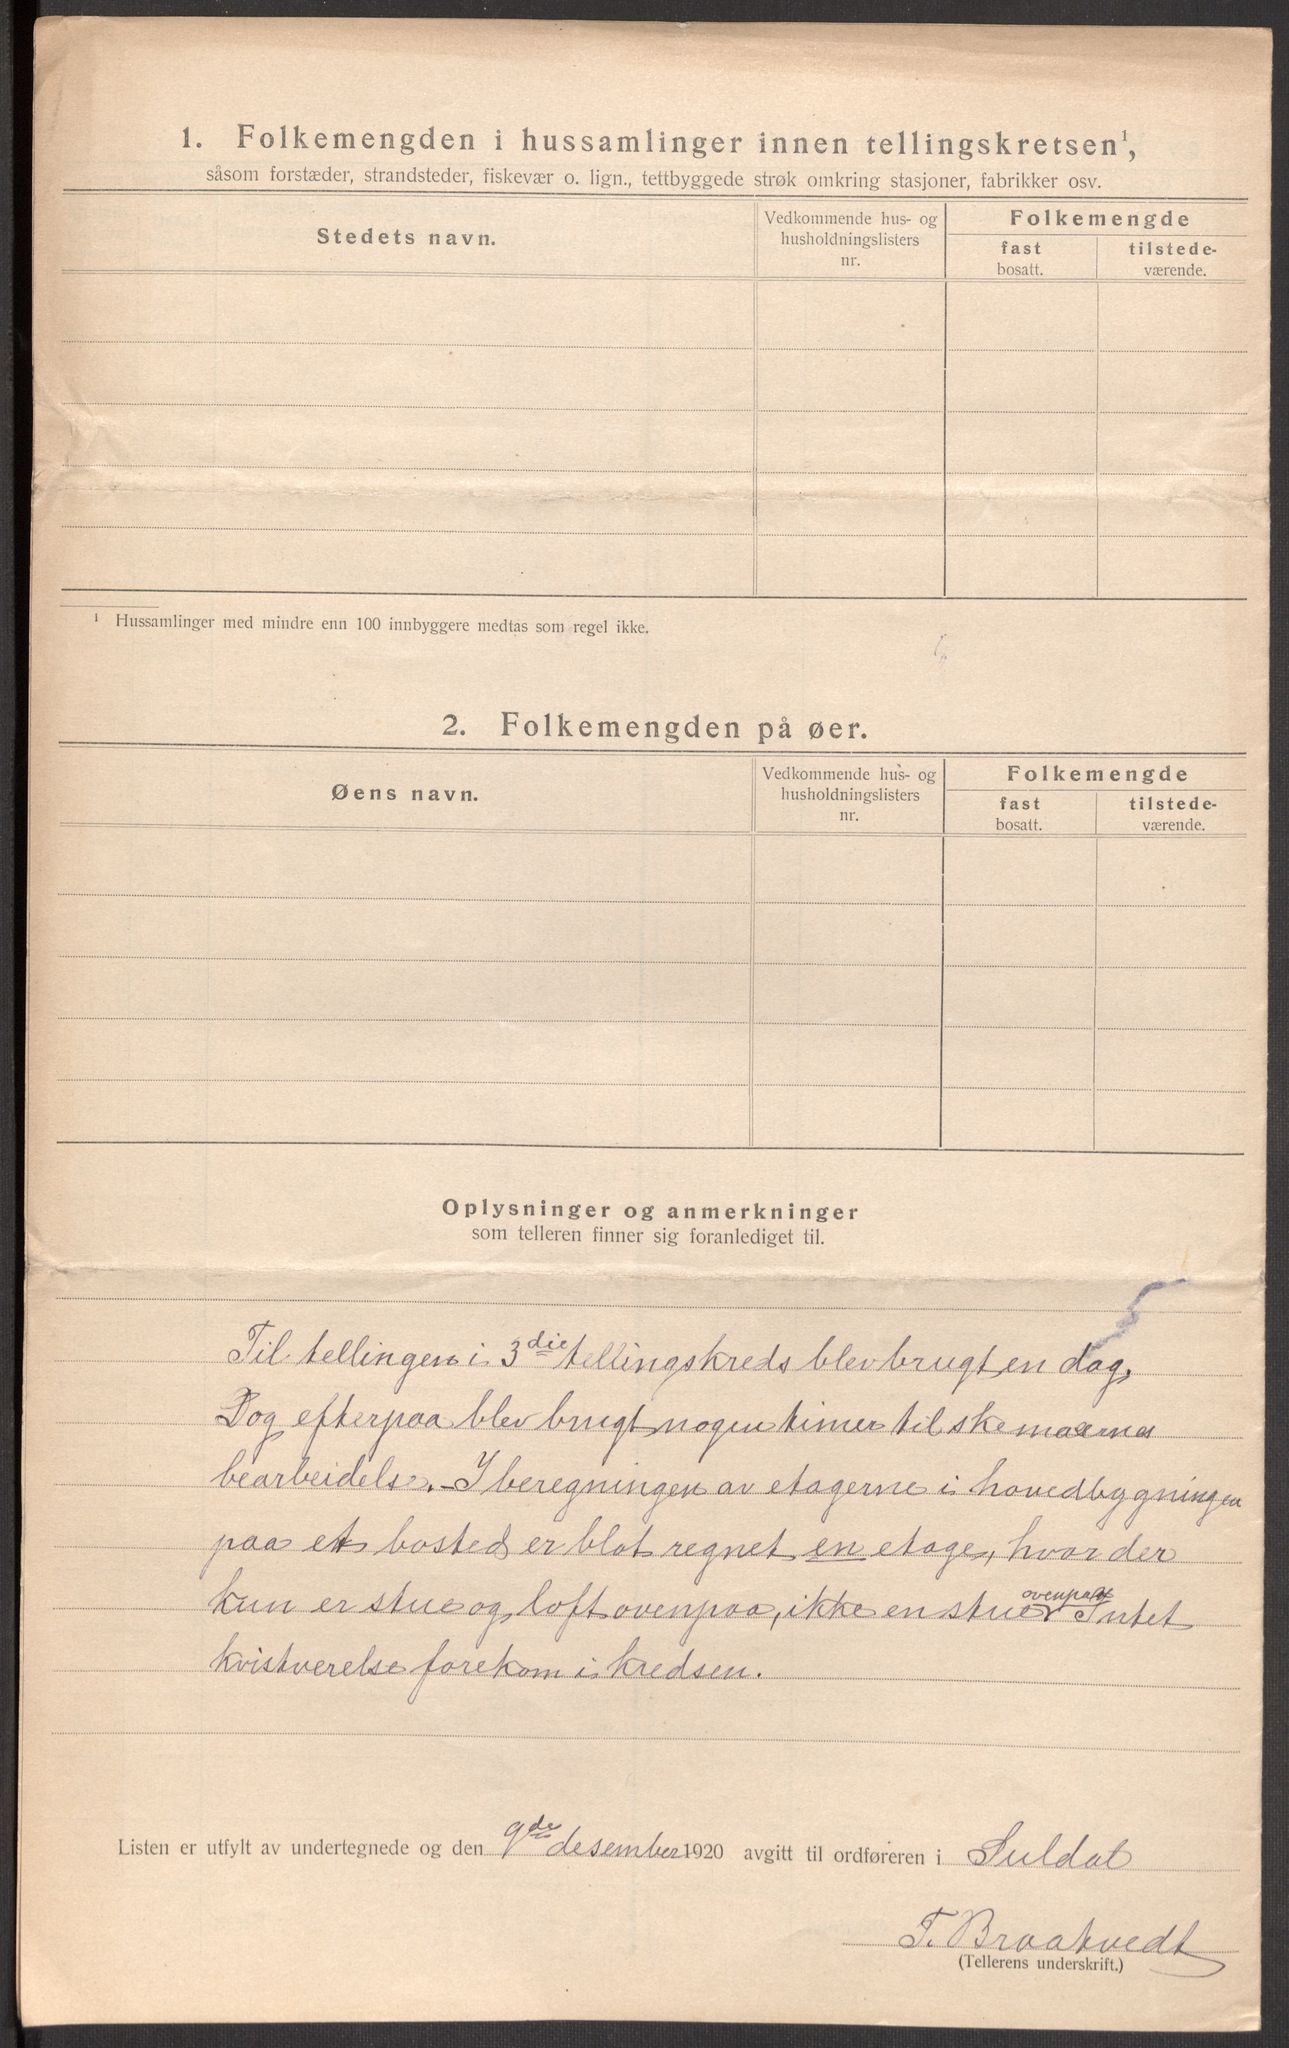 1. Folkemengden i hussamlinger innen tellingskretsen¹,
såsom forstæder, strandsteder, fiskevær o. lign., tettbyggede strøk omkring stasjoner, fabrikker osv.
Stedets navn.
Vedkommende hus- og
husholdningslisters
nr.
Folkemengde
fast
bosatt.
tilstede-
værende.
¹ Hussamlinger med mindre enn 100 innbyggere medtas som regel ikke.
2. Folkemengden på øer.
Øens navn.
Vedkommende hus- og
husholdningslisters
nr.
Folkemengde
fast
bosatt.
tilstede-
værende.
Oplysninger og anmerkninger
som telleren finner sig foranlediget til.
5
Til tellingen i 3die tellingskreds blev brugt en dag.
Dog efterpaa blev brugt nogen timer til skemaernes
bearbeidels. - I beregningen av etagerne i hovedbygningen
paa et bosted er blot regnet en etage, hvor der
kun er stue og loft ovenpaa, ikke en stue ovenpaa. Intet
kvistverelse forekom i kredsen.
Listen er utfylt av undertegnede og den 9de desember 1920 avgitt til ordføreren i Suldal
T. Braatvedt
(Tellerens underskrift.)